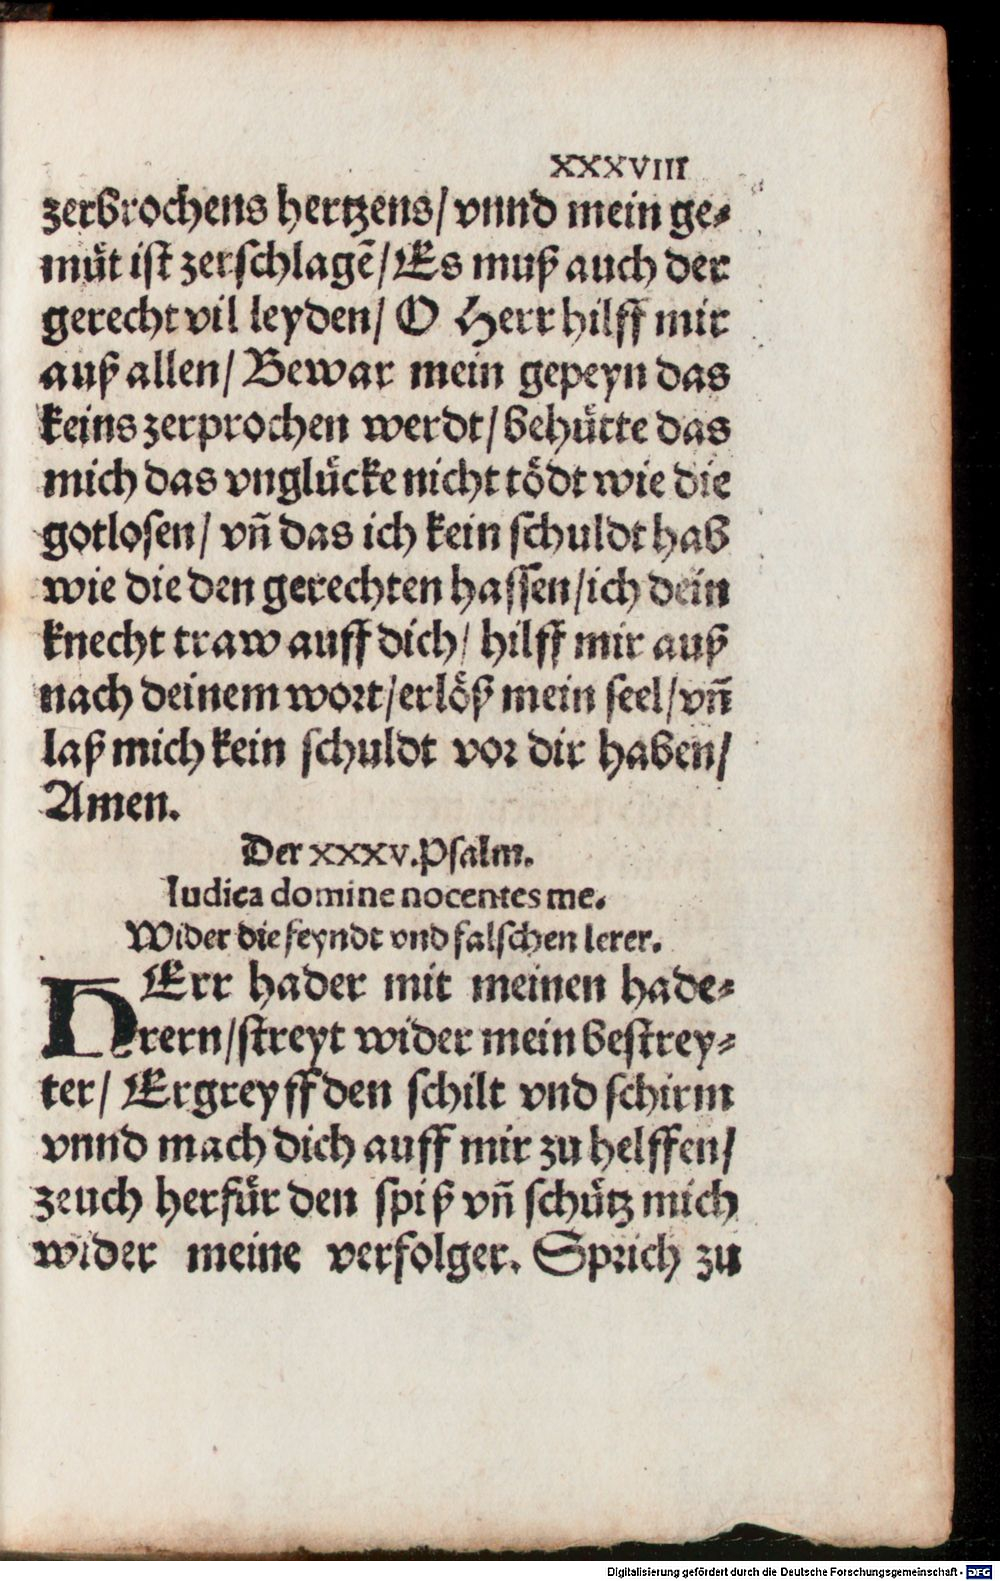 XXXVIII
zerbrochens hertzens/ vnnd mein ge-
müt ist zerschlagē/ Es muß auch der
gerecht vil leyden/ O Herr hilff mir
auß allen/ Bewar mein gepeyn das
keins zerprochen werdt/ behütte das
mich das vnglücke nicht tödt wie die
gotlosen/ vñ das ich kein schuldt hab
wie die den gerechten hassen/ ich dein
knecht traw auff dich/ hilff mir auß
nach deinem wort/ erlöß mein seel/ vñ
laß mich kein schuldt vor dir haben/
Amen.
Der XXXV. Psalm.
Iudica domine nocentes me.
Wider die feyndt vnd falschen lerer.
HErr hader mit meinen hade-
rern/ streyt wider mein bestrey-
ter/ Ergreyff den schilt vnd schirm
vnnd mach dich auff mir zu helffen/
zeuch herfür den spiß vñ schütz mich
wider meine verfolger. Sprich zu
Digitalisierung gefördert durch die Deutsche Forschungsgemeinschaft - DFG